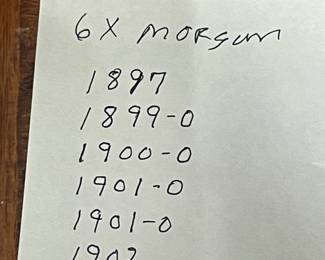 6 X MORGUM
1897
1899-0
1900-0
1901-0
1901-0
1902